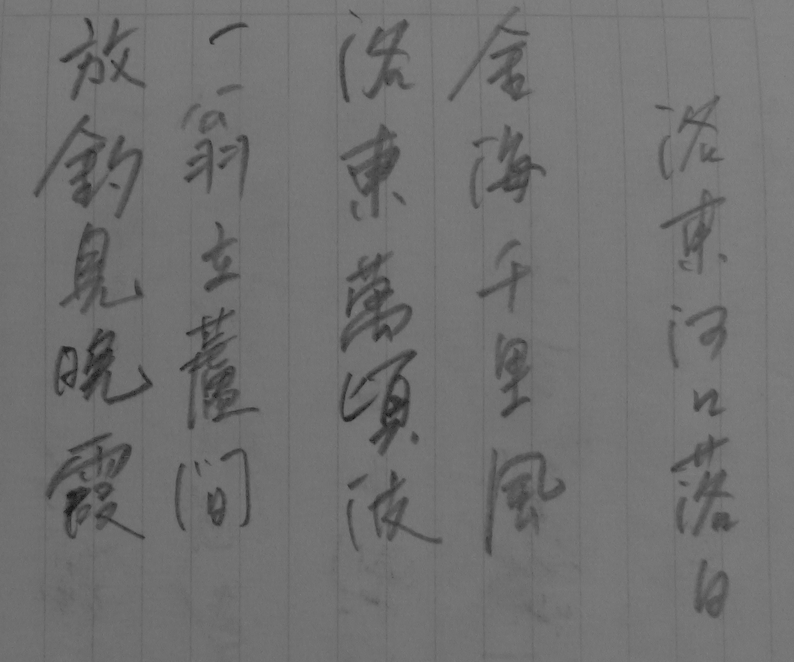 洛東河口落日
金海千里風
洛東萬頃波
一翁立蘆間
放釣見晚霞